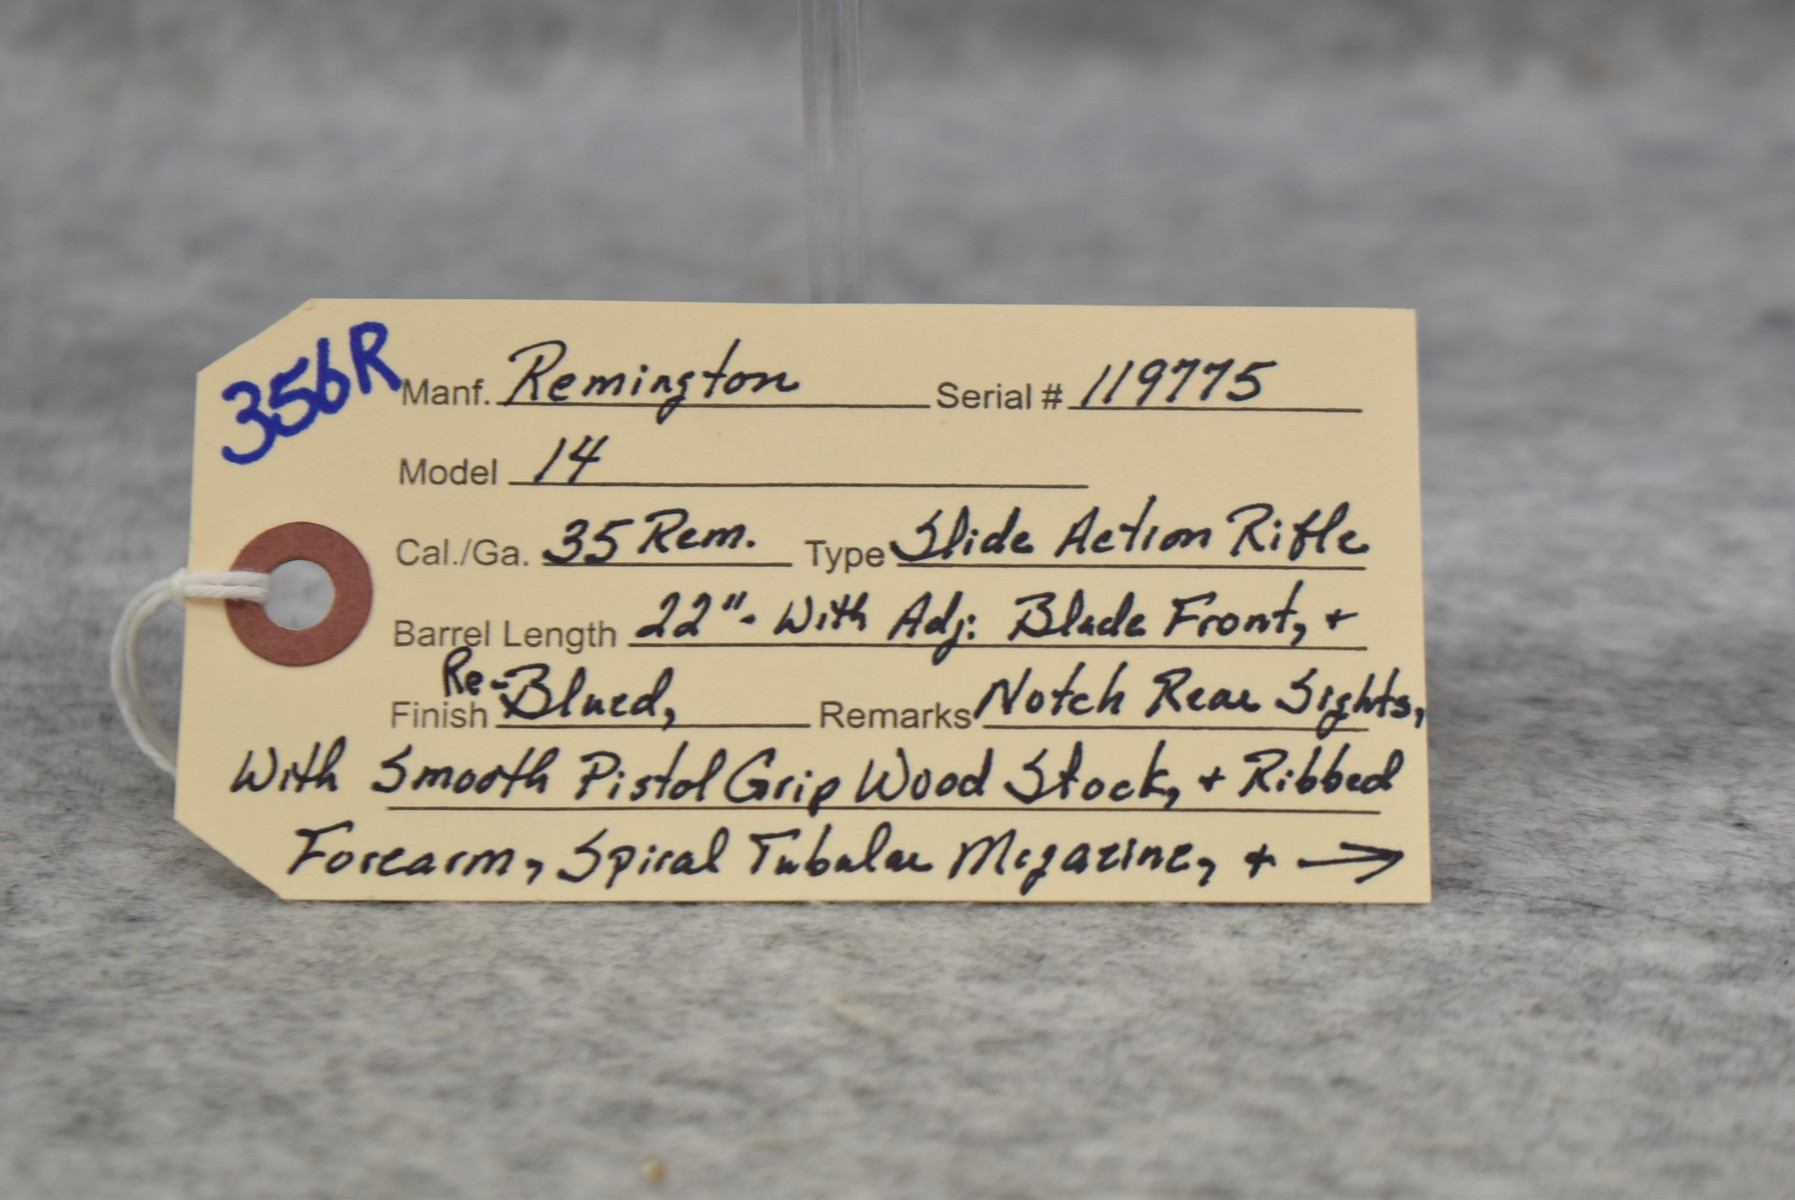 356R
Manf. Remington Serial # 119775
Model 14
Cal./Ga. 35 Rem. Type Slide Action Rifle
Barrel Length 22"- With Adj: Blade Front, +
Finish Re-Blued, Remarks Notch Rear Sights,
With Smooth Pistol Grip Wood Stock, + Ribbed
Forearm, Spiral Tubular Magazine, + →